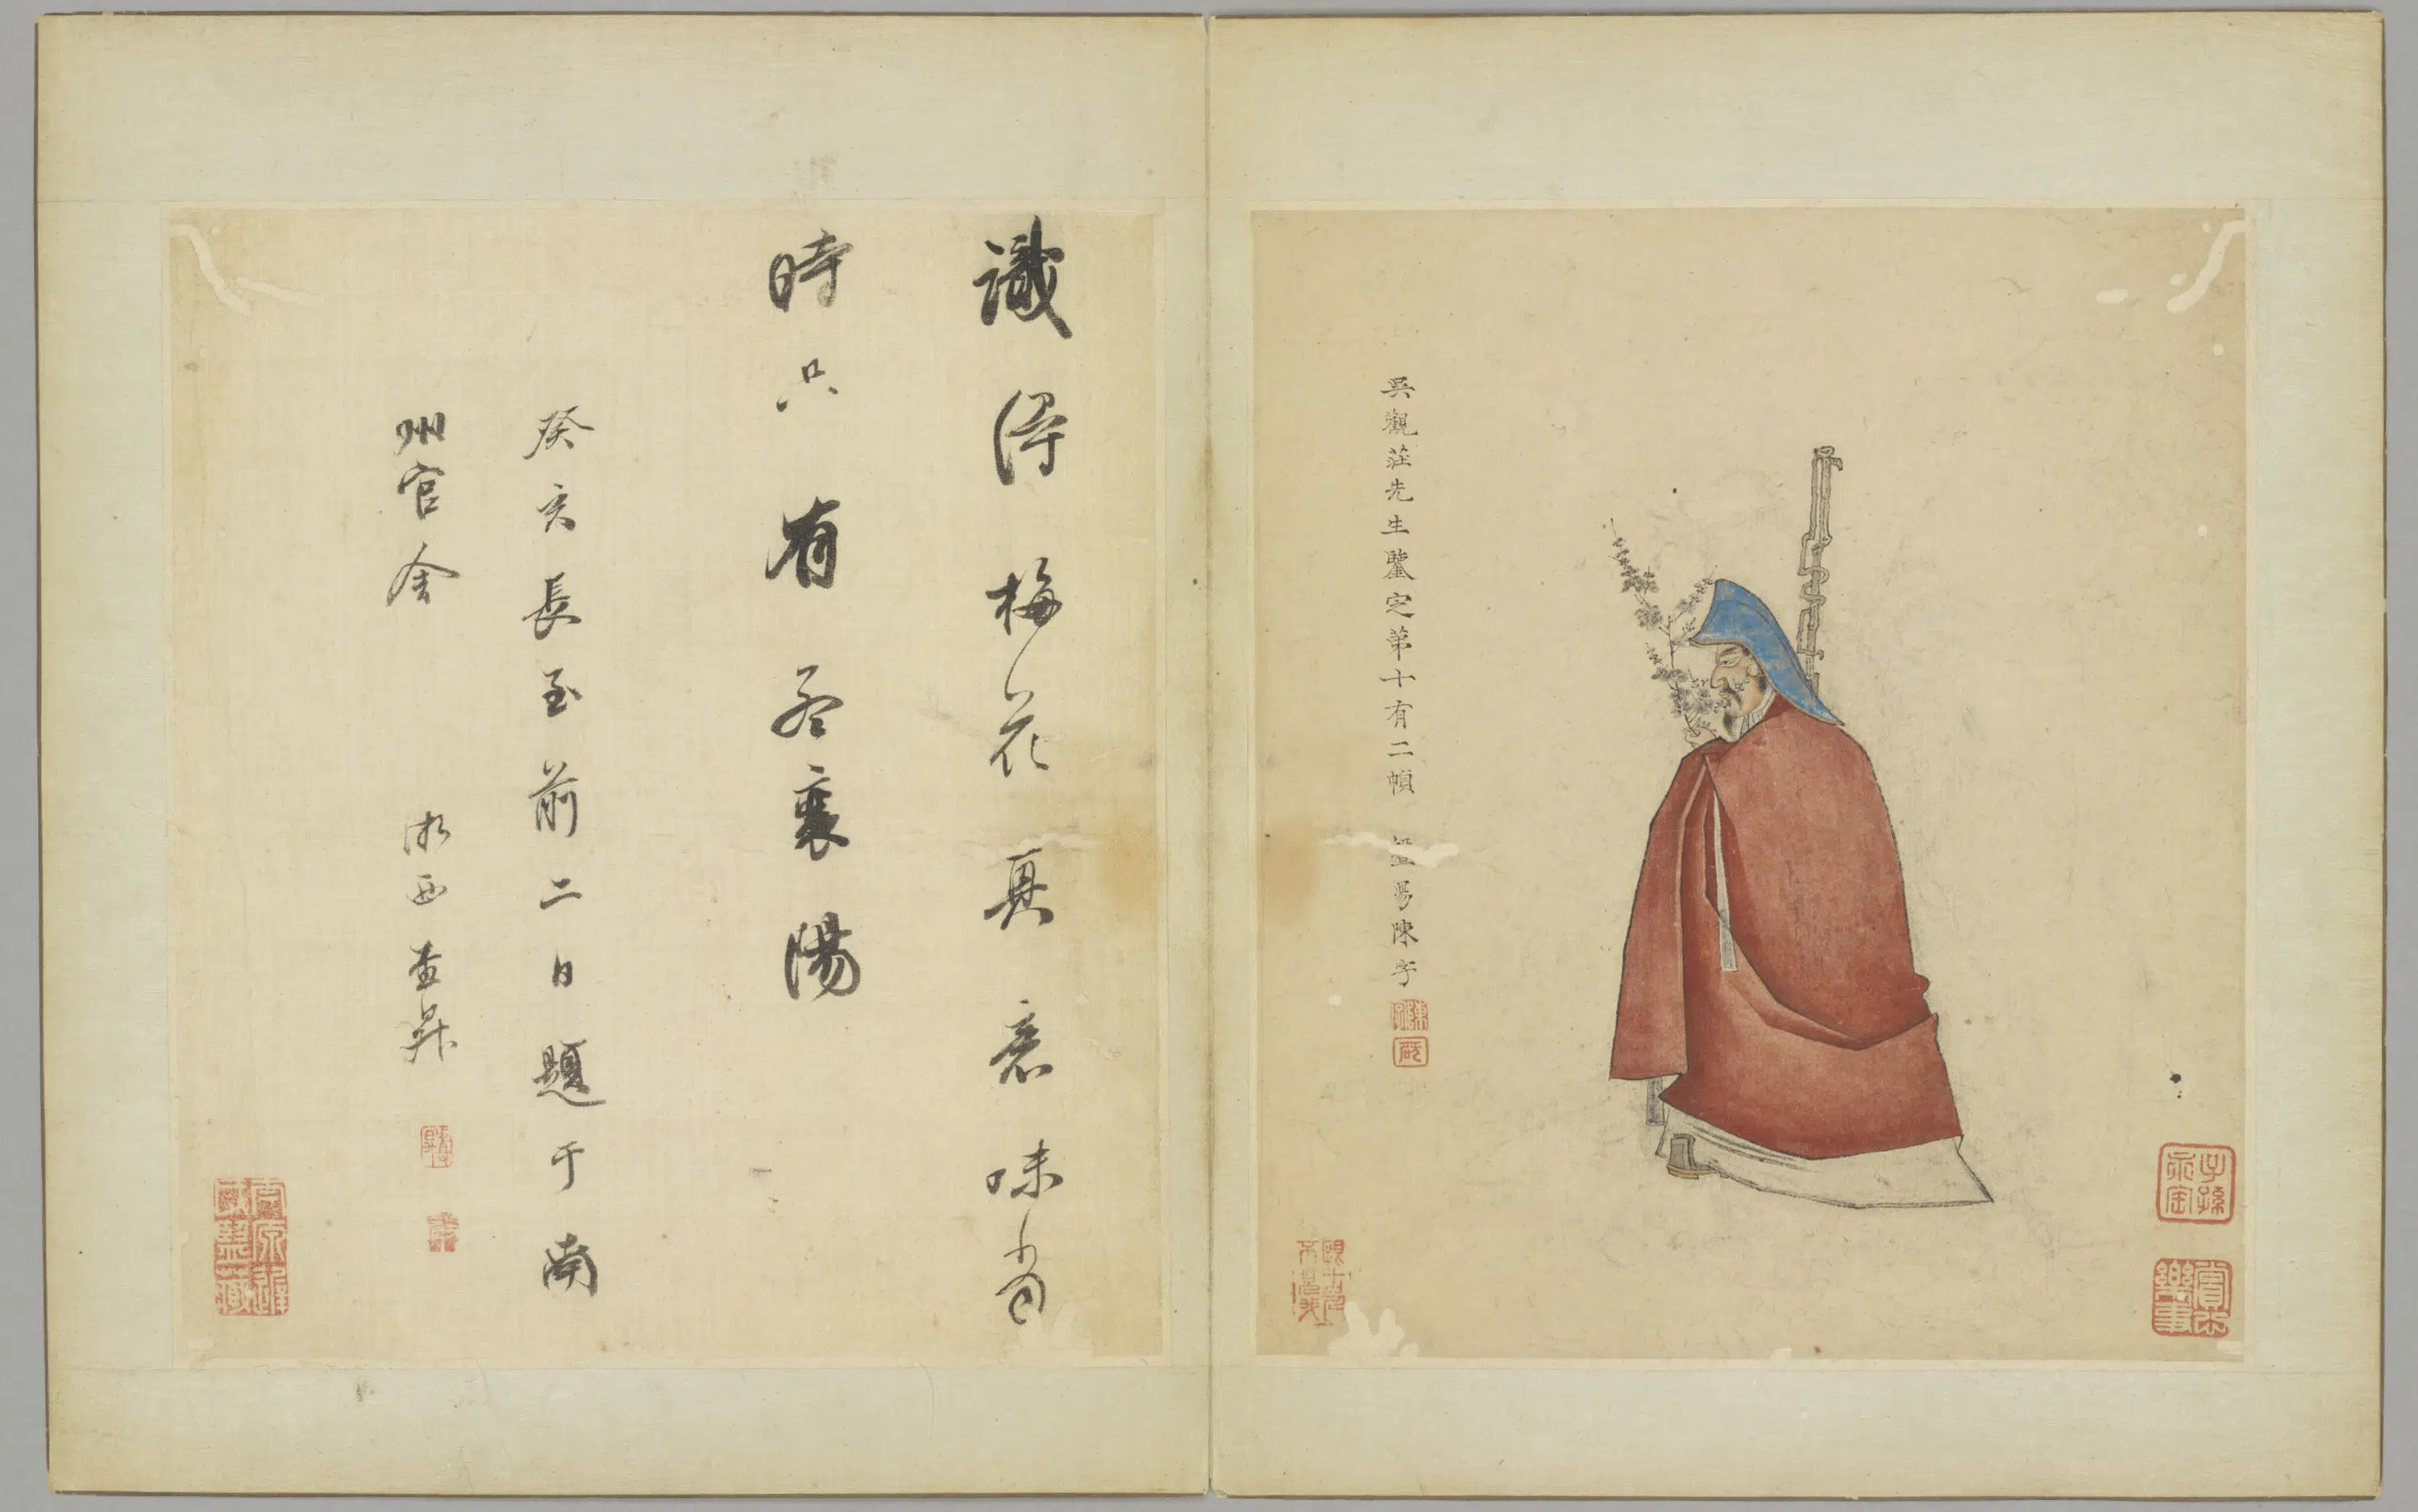 吳觀莊先生鑒定第十有二幀 暨昜陳字
識得梅花真意味當
時只有孟襄陽
癸亥長至前二日題于南
州官舍 浙西查昇
子孫永寶